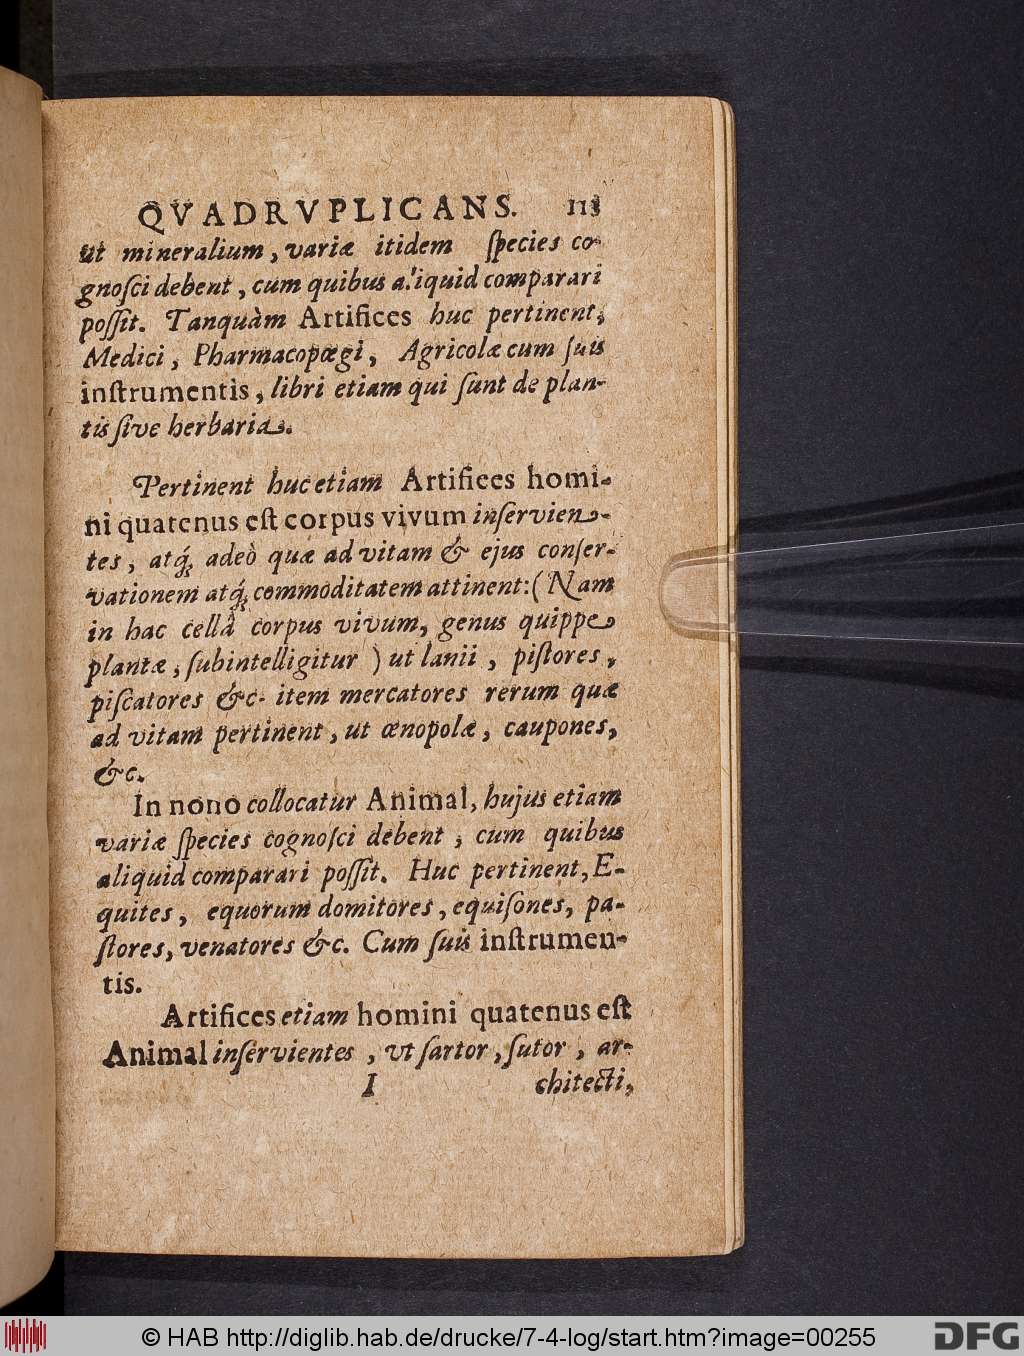 QVADRVPLICANS. 113
ut mineralium, variæ itidem ſpecies co-
gnoſci debent, cum quibus aliquid comparari
poſſit. Tanquàm Artifices huc pertinent,
Medici, Pharmacopœgi, Agricolæ cum ſuis
inſtrumentis, libri etiam qui ſunt de plan-
tis ſive herbaria.
Pertinent huc etiam Artifices homi-
ni quatenus eſt corpus vivum inſervien-
tes, atq́; adeò quæ ad vitam & ejus conſer-
vationem atq́; commoditatem attinent: (Nam
in hac cellâ corpus vivum, genus quippe
plantæ, ſubintelligitur ) ut lanii, piſtores,
piſcatores &c. item mercatores rerum quæ
ad vitam pertinent, ut œnopolæ, caupones,
&c.
In nono collocatur Animal, hujus etiam
variæ ſpecies cognoſci debent, cum quibus
aliquid comparari poſſit. Huc pertinent, E-
quites, equorum domitores, equiſones, pa-
ſtores, venatores &c. Cum ſuis inſtrumen-
tis.
Artifices etiam homini quatenus eſt
Animal inſervientes, ut ſartor, ſutor, ar-
I chitecti,
© HAB http://diglib.hab.de/drucke/7-4-log/start.htm?image=00255 DFG